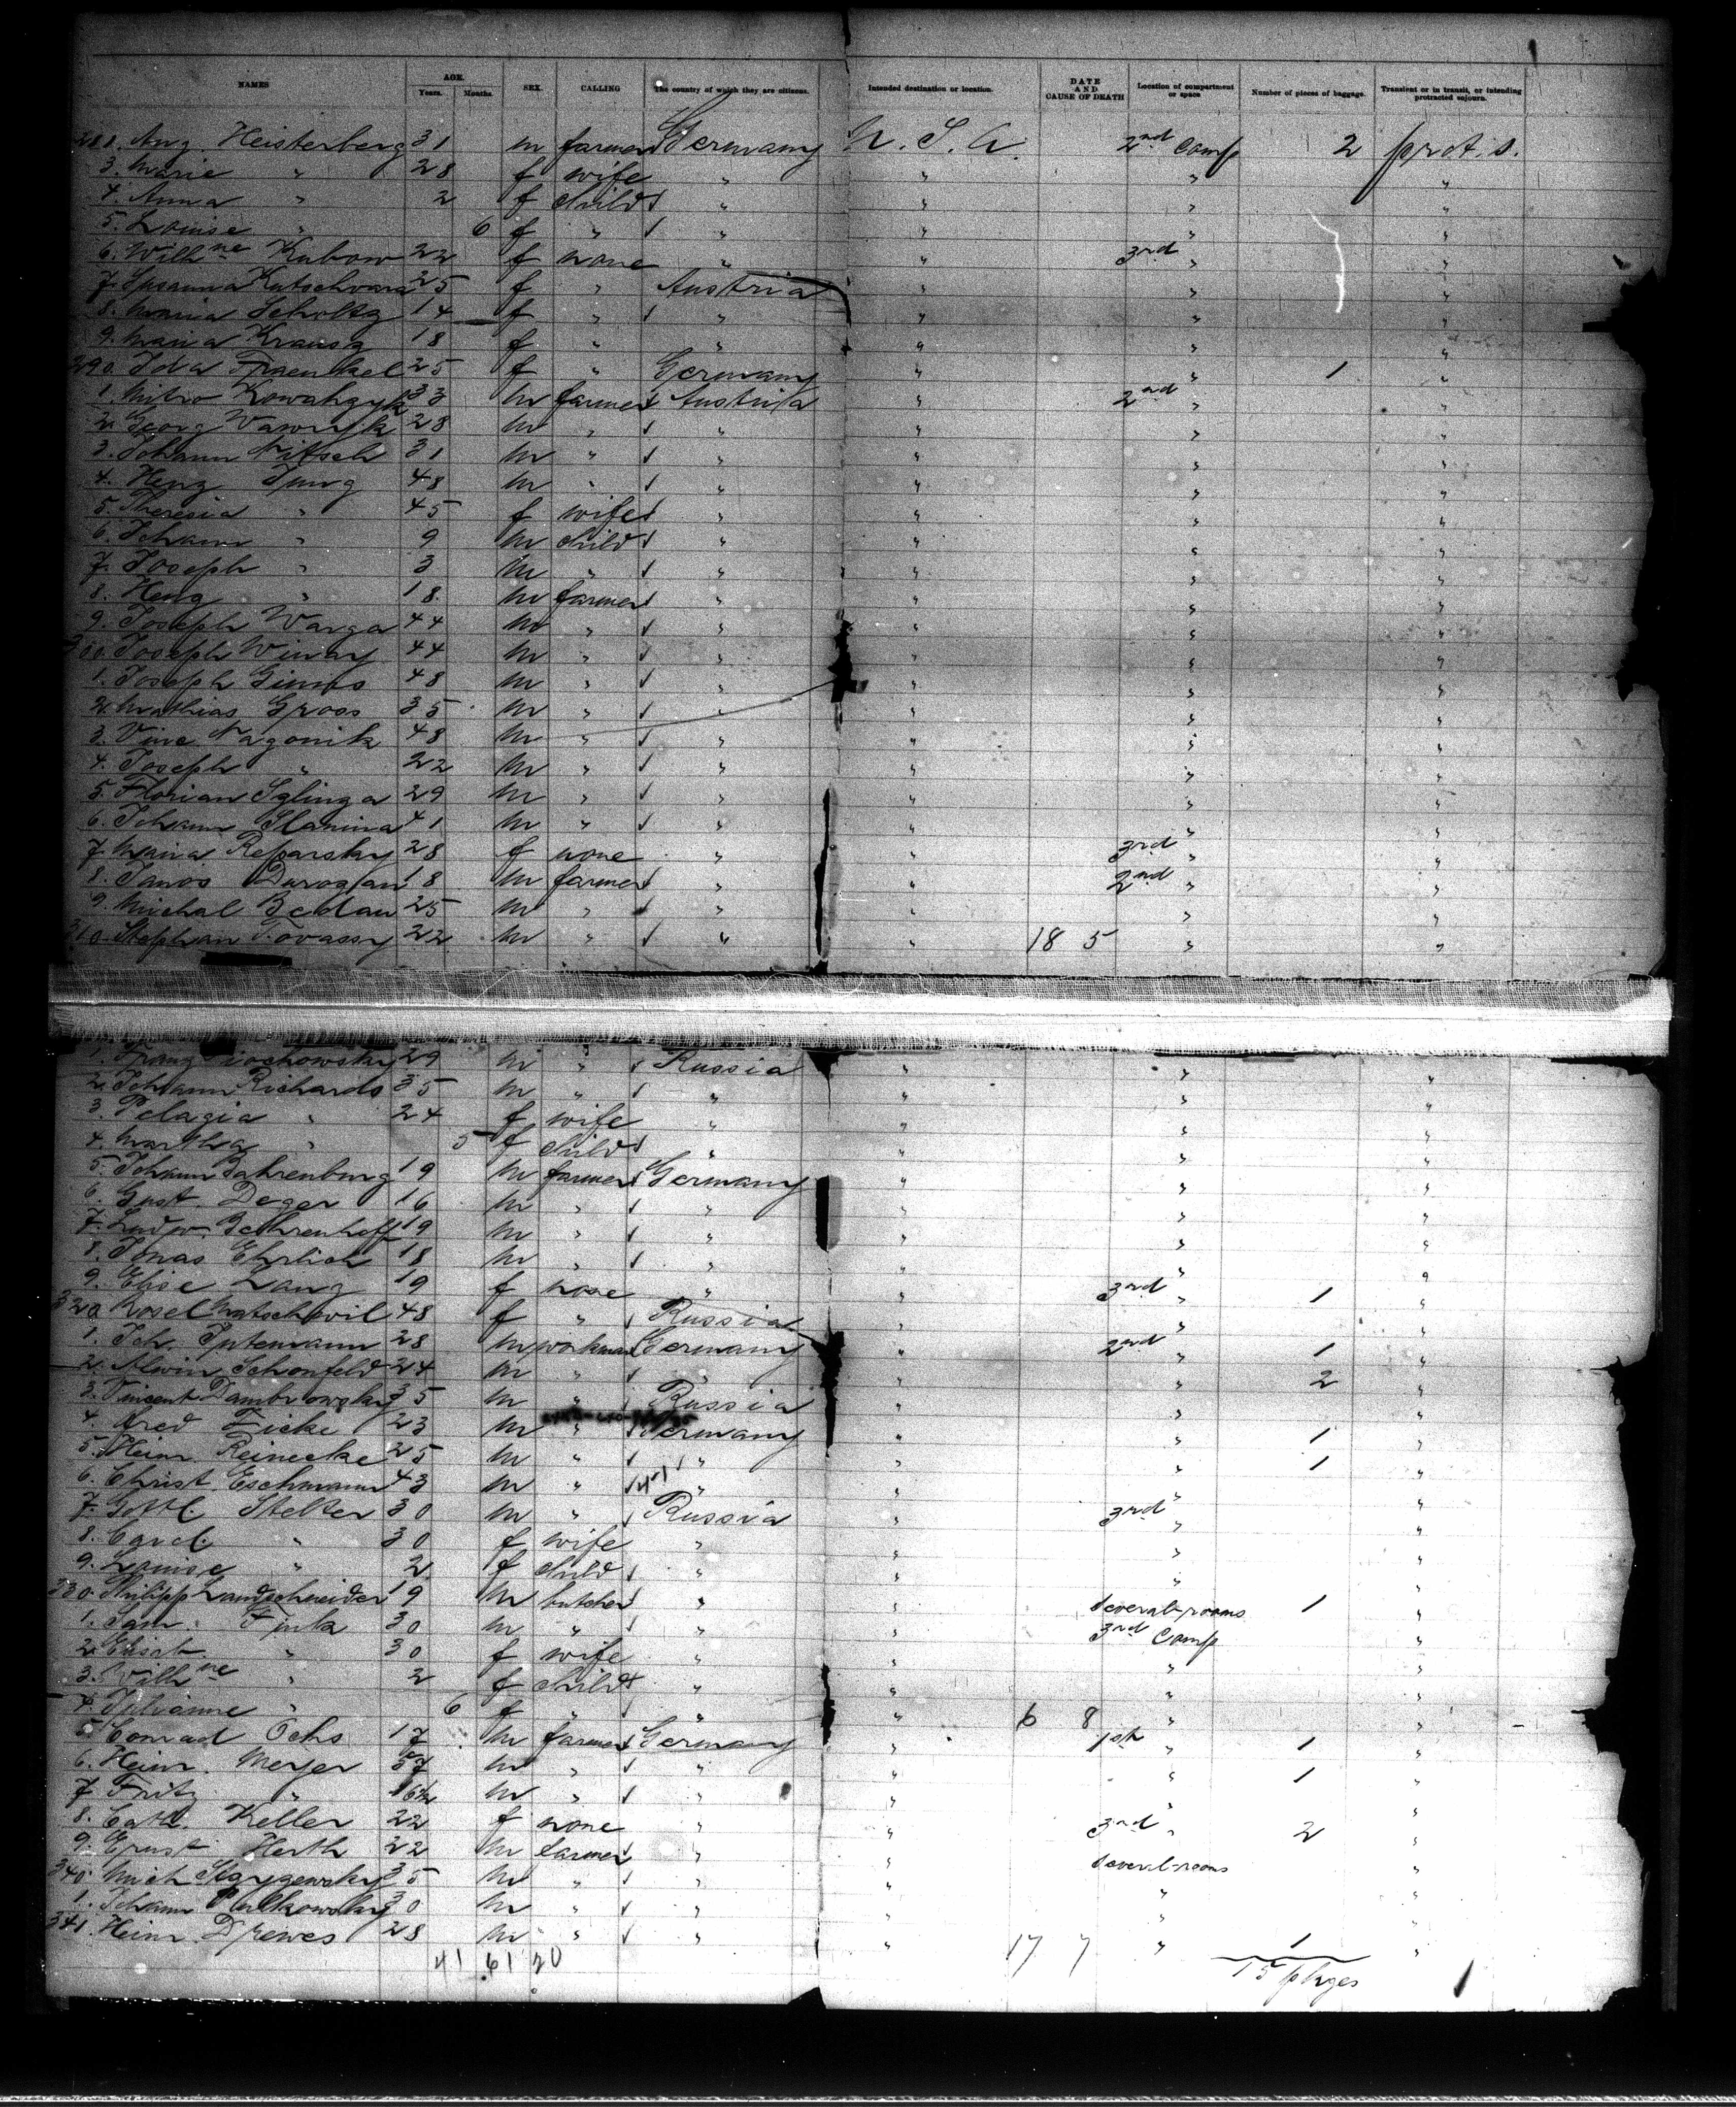 NAMES AGE. Years. Months. SEX. CALLING The country of which they are citizens. Intended destination or location. DATE AND CAUSE OF DEATH Location of compartment or space Number of pieces of baggage. Transient or in transit, or intending protracted sojourn.
Aug. Heisterberg 31 m farmer Germany U. S. A. 2nd Comp 2 prot. s.
3. Marie " 28 f wife " " " "
4. Anna " 2 f child " " " "
5. Louise " 6 f " " " " "
6. Willhne Kubow 22 f none " " 3rd " "
7. Susanna Kutschvara 25 f " Austria " " "
8. Maria Scholtz 14 f " " " " "
9. Maria 18 f " " " " "
290. Ida Fraenkel 25 f " Germany " " 1 "
1. 33 m farmer Austria " 2nd " "
2. Georg 28 m " " " " "
3. Johann Nitsch 31 m " " " " "
4. Henz Jung 48 m " " " " "
5. Theresia " 45 f wife " " " "
6. Johann " 9 m child " " " "
7. Joseph " 3 m " " " " "
8. Henz " 18 m farmer " " " "
9. Joseph Warga 44 m " " " " "
300. Joseph 44 m " " " " "
1. Joseph 48 m " " " " "
2. Mathias Gross 35 m " " " " "
3. Vinc Nagonik 48 m " " " " "
4. Joseph " 22 m " " " " "
5. Florian 29 m " " " " "
6. Johann Slanina 41 m " " " " "
7. Maria 28 f none " " 3rd " "
8. Janos 18 m farmer " " 2nd " "
9. Michal 25 m " " " " "
310. Stephan Tovassy 22 m " " " 18 5 " "
1. Franz 29 m " Russia " " "
2. Johann Richards 35 m " " " " "
3. Pelagia " 24 f wife " " " "
4. Martha " 5 f child " " " "
5. Johann Bahrenburg 19 m farmer Germany " " "
6. Gust. Deger 16 m " " " " "
7. Ludw. Gethrenhoff 19 m " " " " "
8. Jonas Ehrlich 18 m " " " " "
9. Elise Lang 19 f none " " 3rd " 1 "
320. 48 f " Russia " " "
1. Joh. 28 m workman Germany " 2nd " 1 "
2. Alwin Schonfeld 24 m " " " " 2 "
3. Vincent Dambrowsky 35 m " Russia " " "
4. 23 m " Germany " " 1 "
5. Heinr. Reinecke 25 m " " " " 1 "
6. Christ. Eschmann 43 m " " " " "
7. Gottl. Stelter 30 m " Russia " 3rd " "
8. Carol. " 30 f wife " " " "
9. Louise " 2 f child " " " "
330. Philipp Landschneider 19 m butcher " " several-rooms 1 "
1. Fink 30 m " " " 3rd Comp "
2. Elisab. " 30 f wife " " " "
3. Willhne " 2 f child " " " "
4. Julianne " 6 f " " " 6 8 " "
5. Conrad Ochs 17 m farmer Germany " 1st " 1 "
6. Heinr. Meyer 57 m " " " " 1 "
7. Fritz " 16½ m " " " " "
8. Cath. Keller 22 f none " " 3rd " 2 "
9. Ernst Herth 22 m farmer " " several-rooms "
340. Mich 35 m " " " " "
1. Johann 30 m " " " " "
341. Heinr. Drewes 28 m " " " 17 7 " 1 "
41 61 20 15 pkges